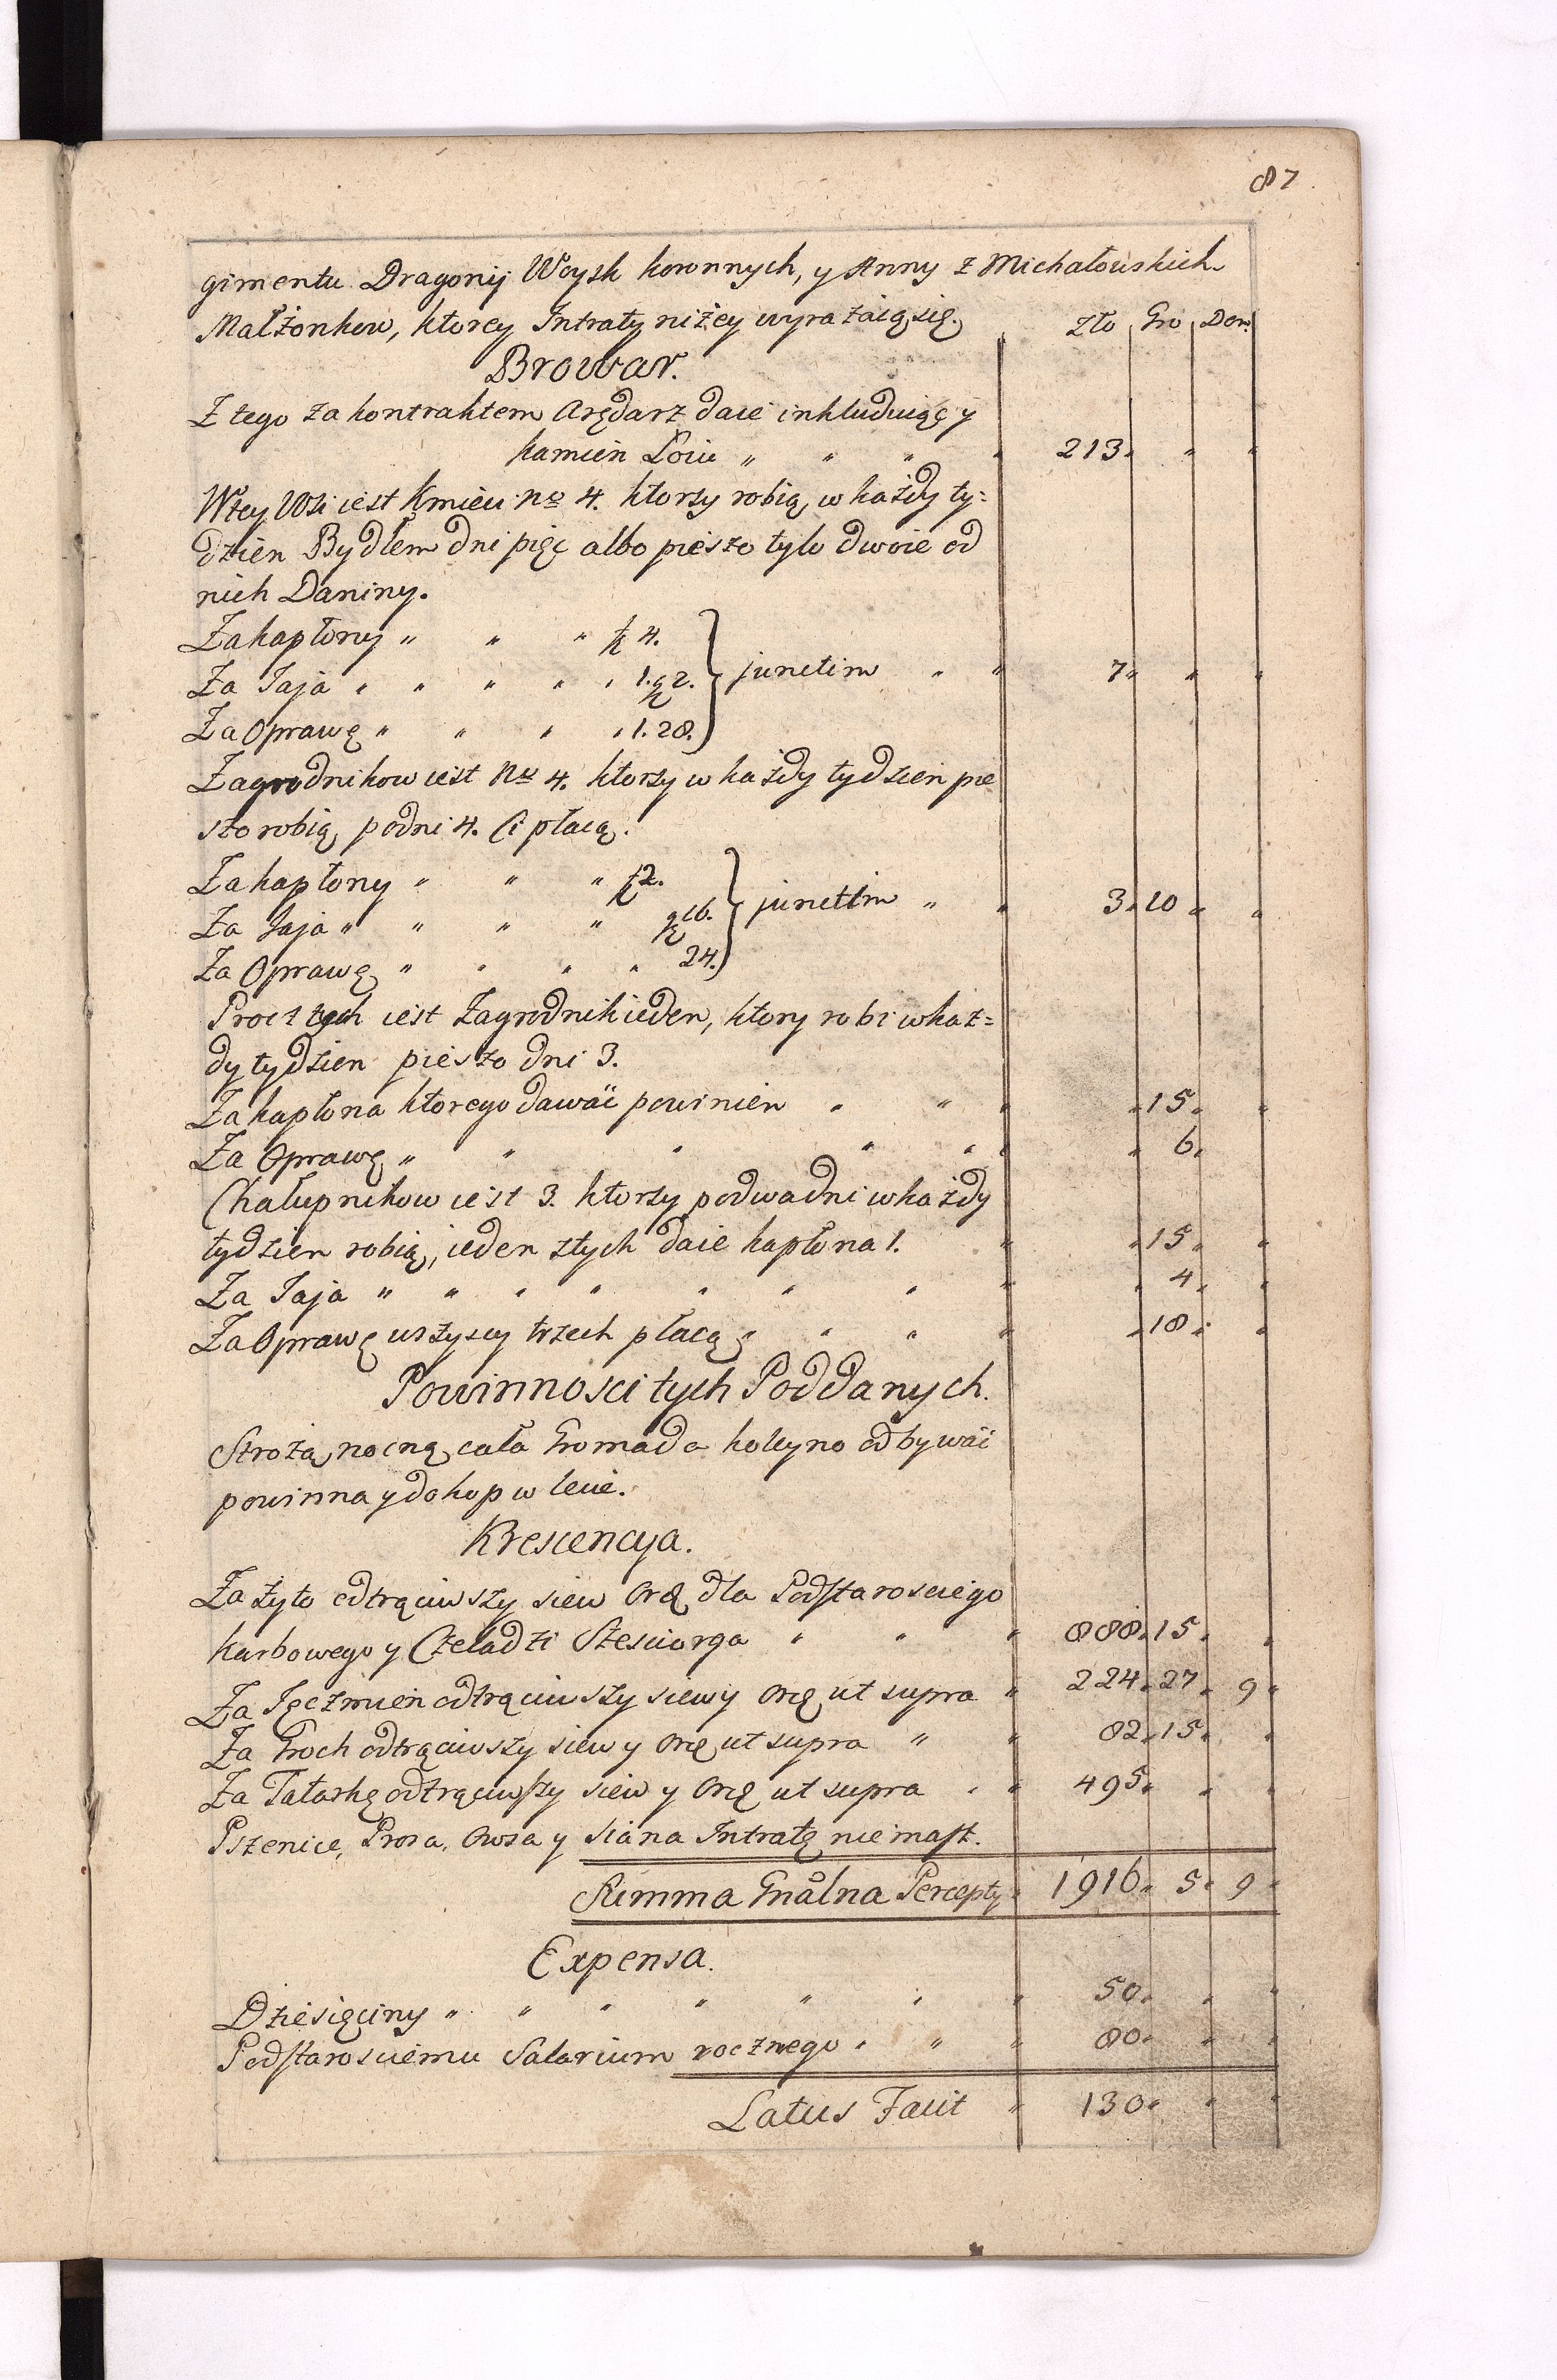 87
gimentu Dragonij Woysk koronnych, y Anny z Michałowskich
Małżonkow, ktorey Intraty niżey wyrażaią się. Zło Gro Den:
Browar.
Z tego za kontraktem Arędarz daie inkluduiąc y
kamien Łoiu " " " " 213 " "
W tey Wsi iest Kmieci No 4. ktorzy robią w każdy ty=
dzien Bydłem dni pięć albo pieszo tylo dwoie od
nich Daniny.
Za kapłony " " " zł 4.
Za Jaja " " " " " 1. gr 2. } junctim " " 7 " "
Za Oprawę " " " " 1. 28.
Zagrodnikow iest No 4. ktorzy w każdy tydzien pie
szo robią po dni 4. Ci płacą.
Za kapłony " " " zł 2.
Za Jaja " " " " gr 16. } junctim " " 3 10 " "
Za Oprawę " " " " 24.
Procz tych iest Zagrodnik ieden, ktory robi w każ=
dy tydzien pieszo dni 3.
Za kapłona ktorego dawać powinien " " " " 15 "
Za Oprawę " " " " " " " 6
Chałupnikow iest 3. ktorzy po dwa dni w każdy
tydzien robią, ieden z tych daie kapłona 1. " " 15 "
Za Jaja " " " " " " " " " 4 "
Za Oprawę wszyscy trzech płacą " " " " " 18 "
Powinnosci tych Poddanych.
Strożą nocną cała Gromada koleyno odbywać
powinna y do kop w lecie.
Krescencya.
Za żyto odtrąciwszy siew Orę dla Podstarosciego
Karbowego y Czeladzi Szesciorga " " " 888 15 "
Za Jęczmien odtrąciwszy siew y Orę ut supra " 224 27 9
Za Groch odtrąciwszy siew y Orę ut supra " " 82 15 "
Za Tatarkę odtrąciwszy siew y Orę ut supra " " 495 " "
Pszenice, Prosa, Owsa y Siana Intratę nie masz.
Summa Gnalna Percepty 1916 5 9
Expensa.
Dziesięciny " " " " " " " 50 " "
Podstarosciemu Salarium rocznego " " " 80 " "
Latus Facit " 130 " "